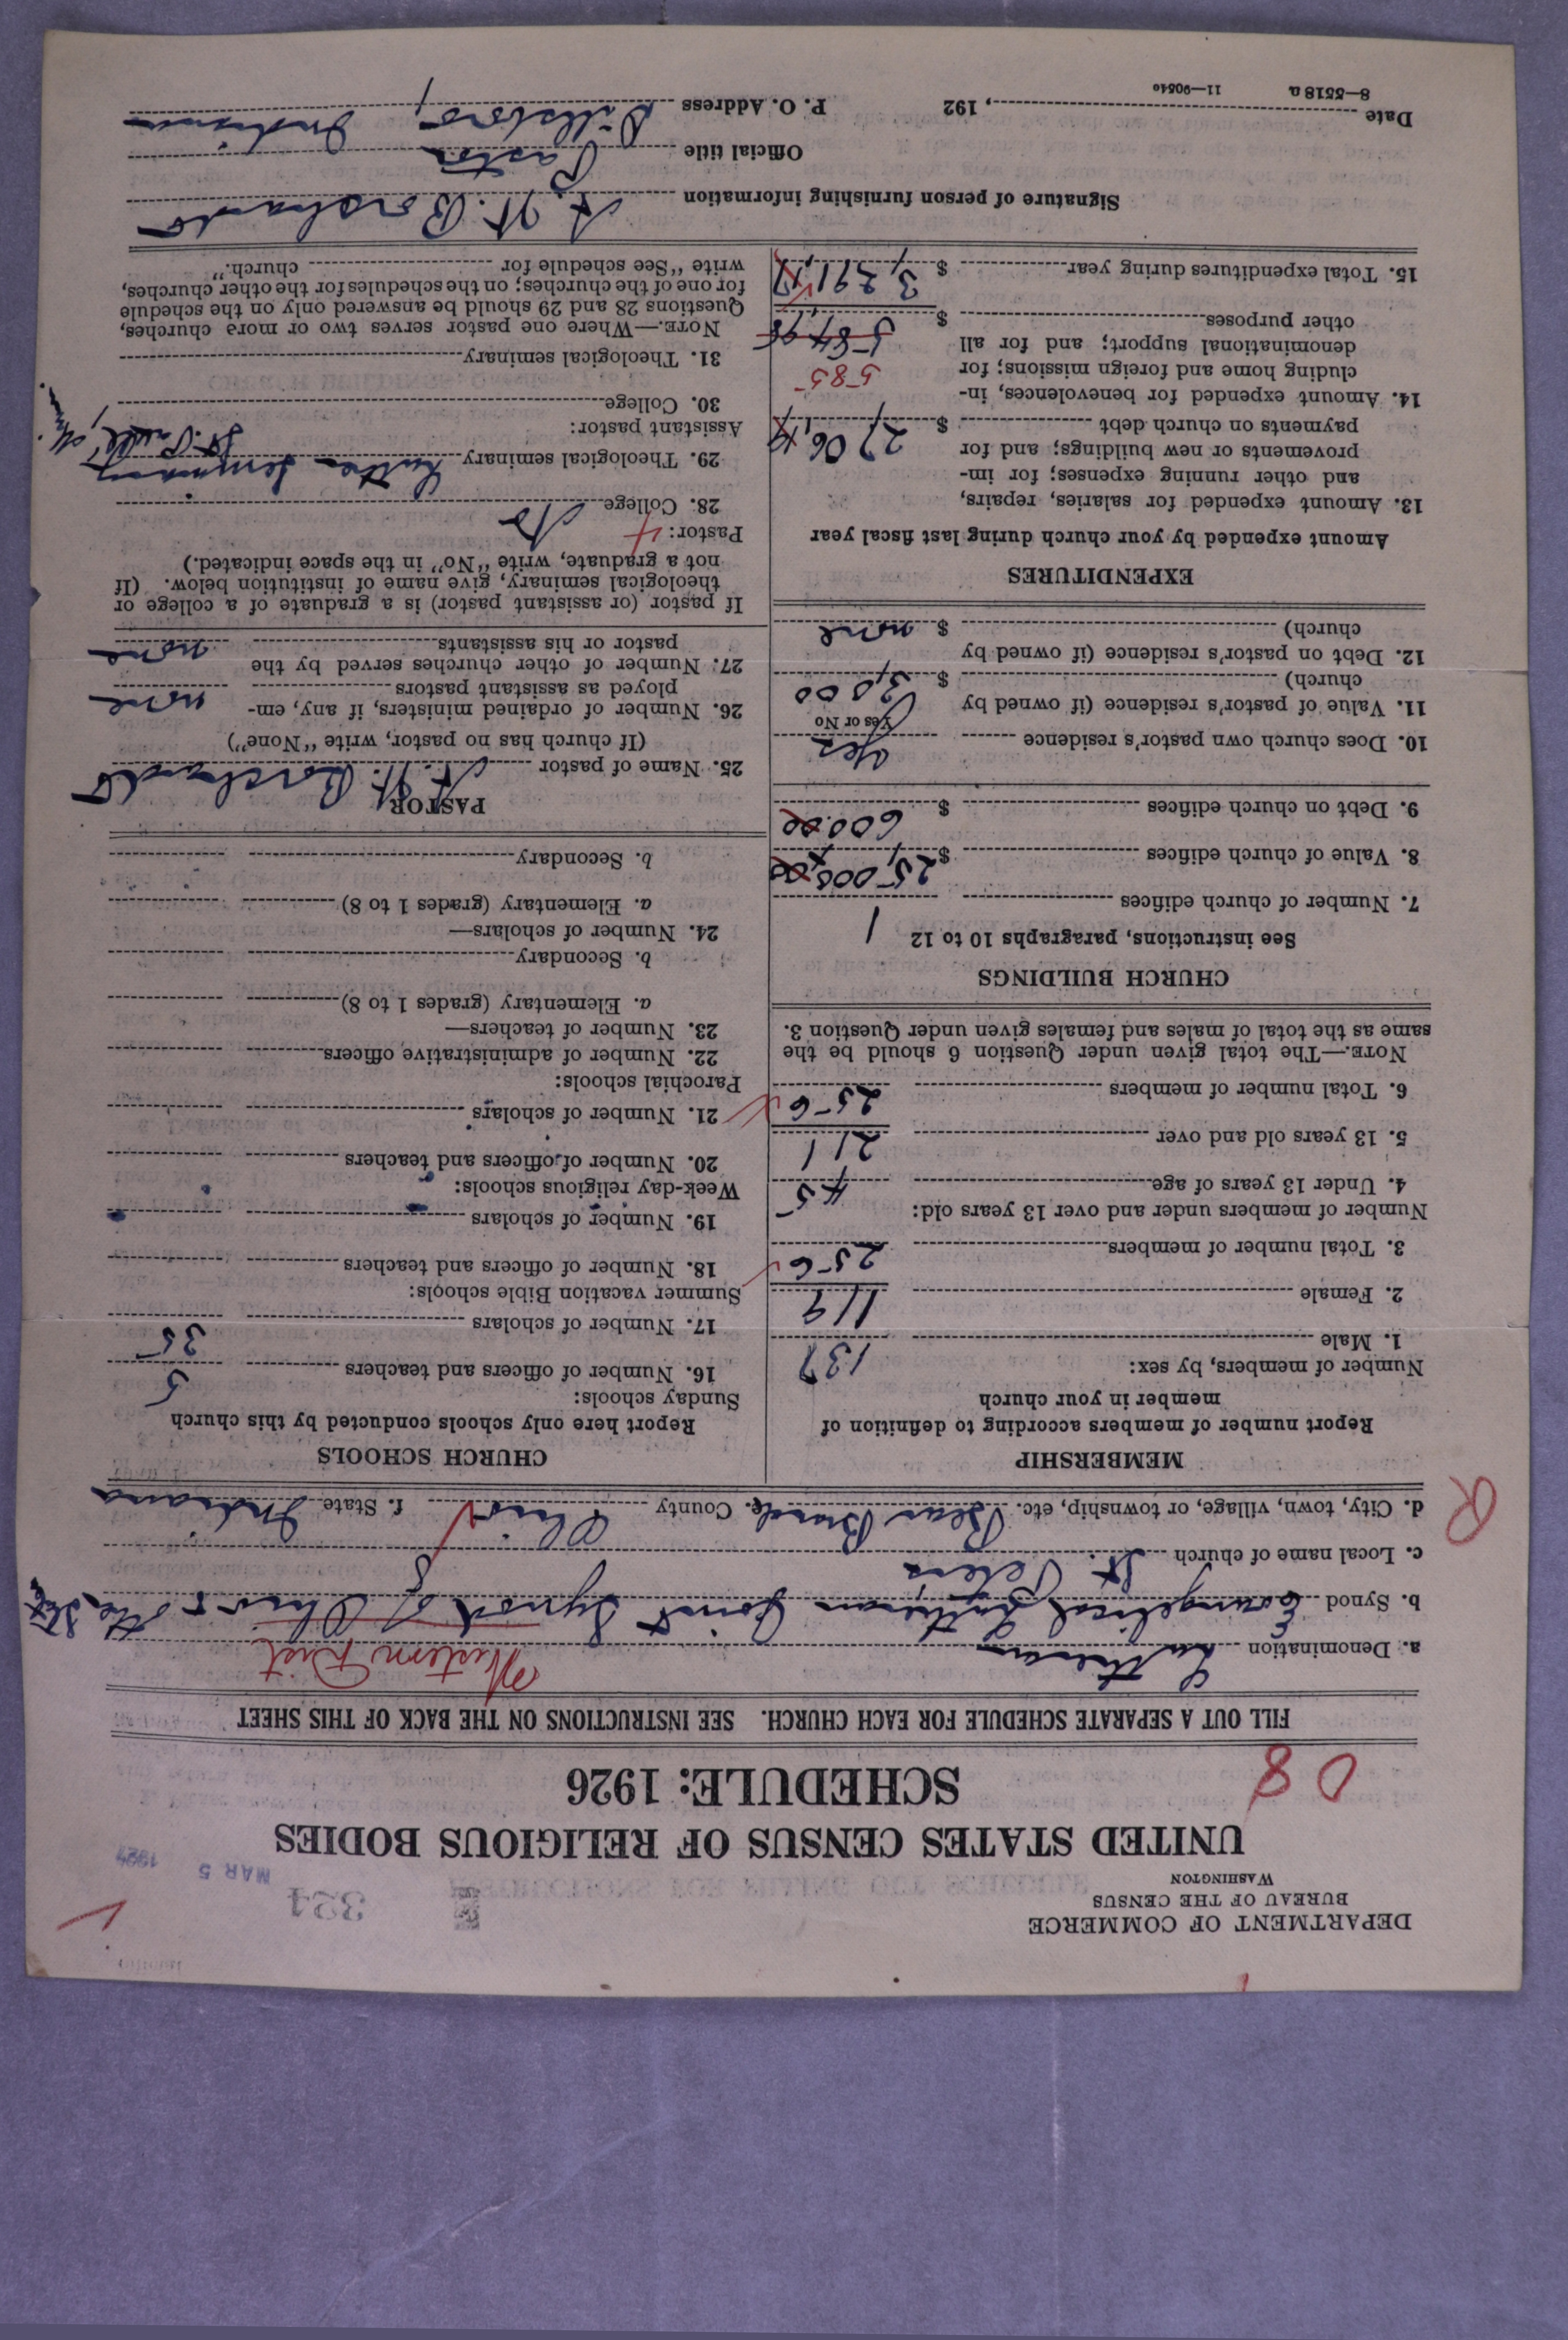 DEPARTMENT OF COMMERCE
BUREAU OF THE CENSUS
WASHINGTON
321
MAR 5 1927
UNITED STATES CENSUS OF RELIGIOUS BODIES
SCHEDULE: 1926
08
FILL OUT A SEPARATE SCHEDULE FOR EACH CHURCH. SEE INSTRUCTIONS ON THE BACK OF THIS SHEET
a. Denomination Lutheran Western Dist
b. Synod Evangelical Lutheran Joint Synod of Ohio &
c. Local name of church St. Peters
d. City, town, village, or township, etc. Bear Branch e. County Ohio f. State Indiana
R
MEMBERSHIP
Report number of members according to definition of
member in your church
Number of members, by sex:
1. Male 137
2. Female 119
3. Total number of members 256
Number of members under and over 13 years old:
4. Under 13 years of age 45
5. 13 years old and over 211
6. Total number of members 256
NOTE.—The total given under Question 6 should be the
same as the total of males and females given under Question 3.
CHURCH BUILDINGS
See instructions, paragraphs 10 to 12
7. Number of church edifices 1
8. Value of church edifices $ 25,000.00
9. Debt on church edifices $ 600.00
10. Does church own pastor's residence Yes
Yes or No
11. Value of pastor's residence (if owned by
church) $ 3,000
12. Debt on pastor's residence (if owned by
church) $ none
EXPENDITURES
Amount expended by your church during last fiscal year
13. Amount expended for salaries, repairs,
and other running expenses; for im-
provements or new buildings; and for
payments on church debt $ 2,706.
14. Amount expended for benevolences, in-
cluding home and foreign missions; for
denominational support; and for all
other purposes $ 584.98
585
15. Total expenditures during year $ 3,291.
CHURCH SCHOOLS
Report here only schools conducted by this church
Sunday schools:
16. Number of officers and teachers 5
17. Number of scholars 35
Summer vacation Bible schools:
18. Number of officers and teachers
19. Number of scholars
Week-day religious schools:
20. Number of officers and teachers
21. Number of scholars
Parochial schools:
22. Number of administrative officers
23. Number of teachers—
a. Elementary (grades 1 to 8)
b. Secondary
24. Number of scholars—
a. Elementary (grades 1 to 8)
b. Secondary
PASTOR
25. Name of pastor A. H. Borchardt
(If church has no pastor, write "None")
26. Number of ordained ministers, if any, em-
ployed as assistant pastors none
27. Number of other churches served by the
pastor or his assistants none
If pastor (or assistant pastor) is a graduate of a college or
theological seminary, give name of institution below. (If
not a graduate, write "No" in the space indicated.)
Pastor: 4
28. College No
29. Theological seminary Luther Seminary St. Paul,
Assistant pastor:
30. College
31. Theological seminary
NOTE.—Where one pastor serves two or more churches,
Questions 28 and 29 should be answered only on the schedule
for one of the churches; on the schedules for the other churches,
write "See schedule for church."
Signature of person furnishing information A. H. Borchardt
Official title Pastor
Date , 192 P. O. Address Dillsboro, Indiana
8—5518 a 11—9054